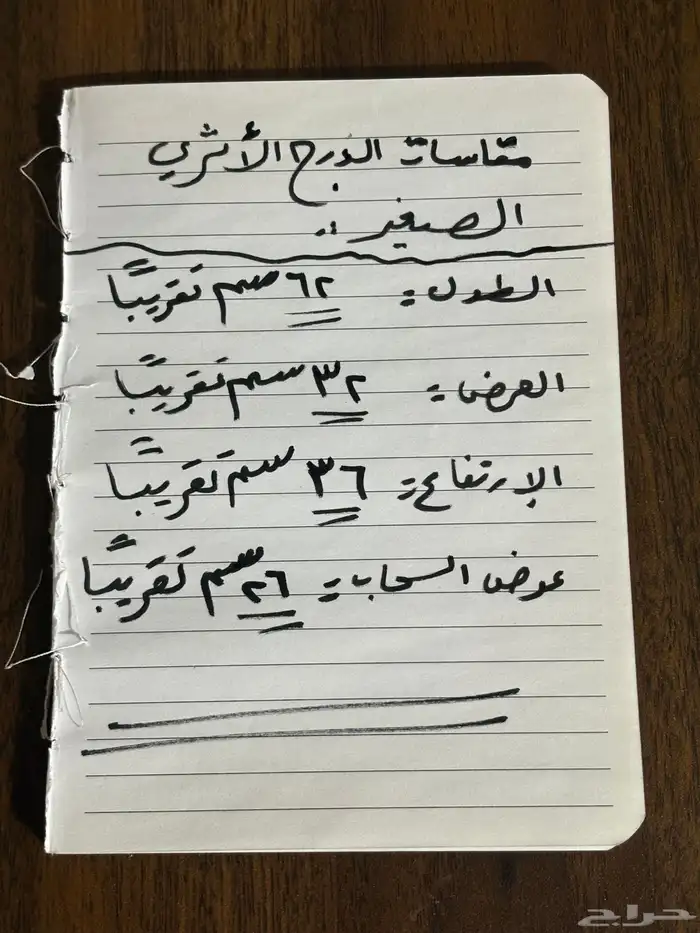 مقاسات الدرج الأثري
الصغير ..
الطول = ٦٢ سم تقريبًا
العرض = ٣٢ سم تقريبًا
الإرتفاع = ٣٦ سم تقريبًا
عرض السحاب = ٢٦ سم تقريبًا
حراج